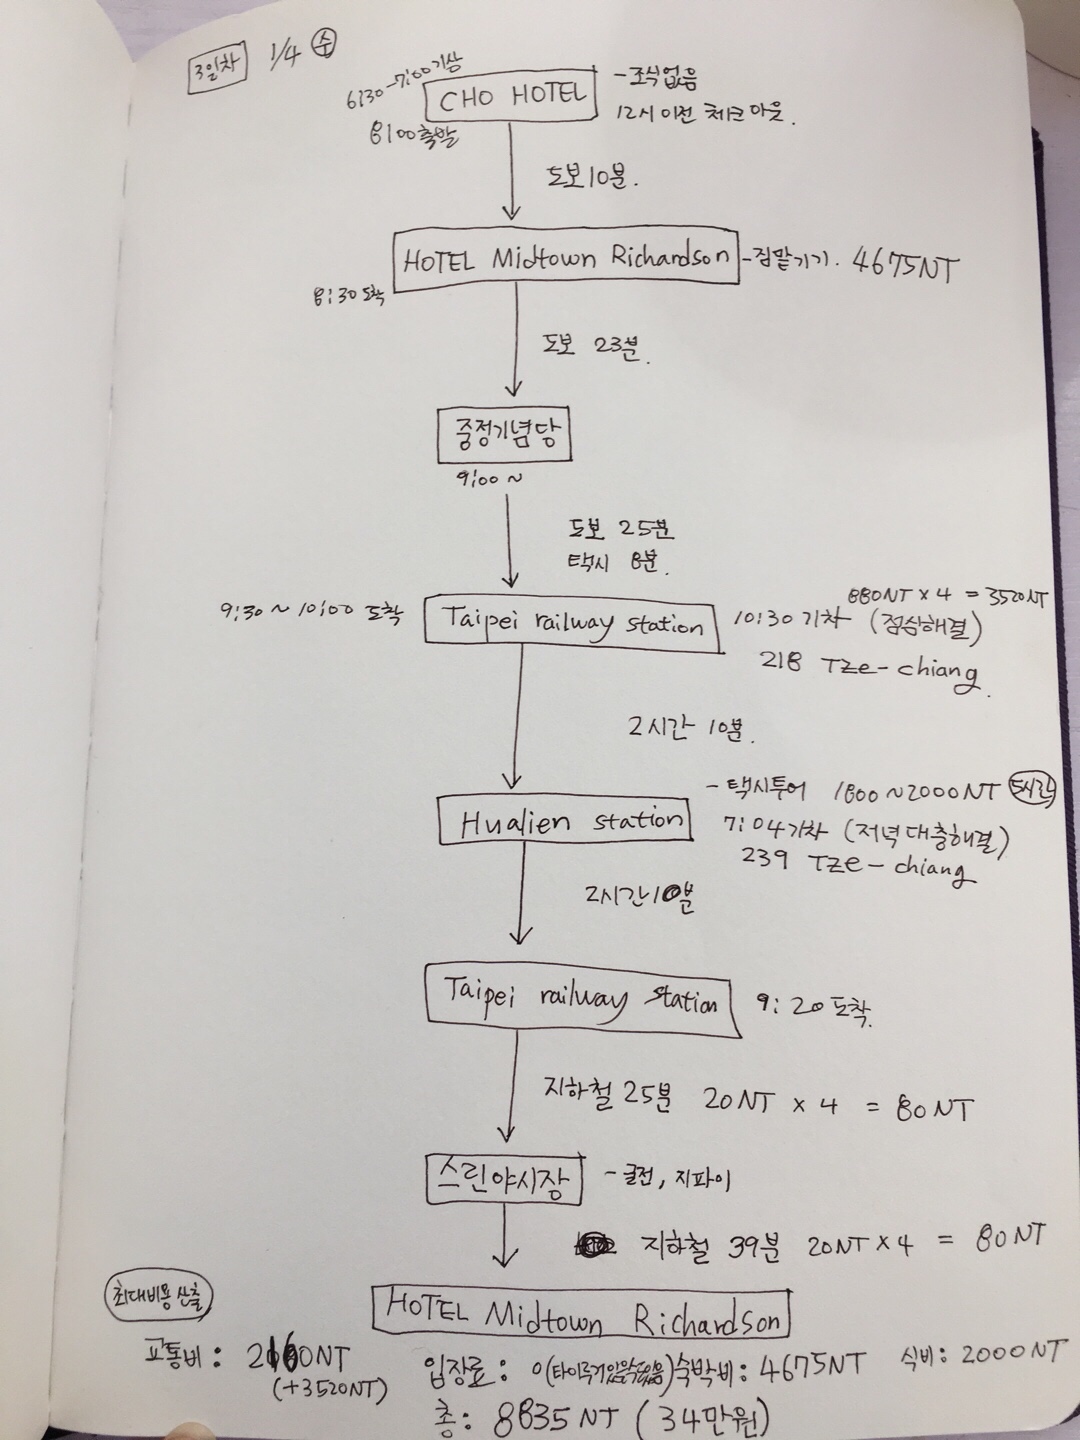 3일차 1/4 수
6:30-7:00 기상
CHO HOTEL
- 조식없음
8:00 출발
12시 이전 체크아웃.
도보10분.
HOTEL Midtown Richardson - 짐맡기기. 4675NT
8:30 도착
도보 23분.
중정기념당
9:00 ~
도보 25분
택시 8분.
9:30 ~ 10:00 도착
Taipei railway station
880NT x 4 = 3520NT
10:30 기차 (점심해결)
218 Tze-chiang.
2시간 10분.
Hualien station
- 택시투어 1800~2000NT 5시간
7:04기차 (저녁대충해결)
239 Tze-chiang
2시간10분
Taipei railway station 9:20 도착.
지하철 25분 20NT x 4 = 80NT
스린야시장 - 굴전, 지파이
지하철 39분 20NT x 4 = 80NT
HOTEL Midtown Richardson
최대비용 산출
교통비: 2160NT
(+3520NT)
입장료: 0 숙박비: 4675NT 식비: 2000NT
총: 8835NT (34만원)